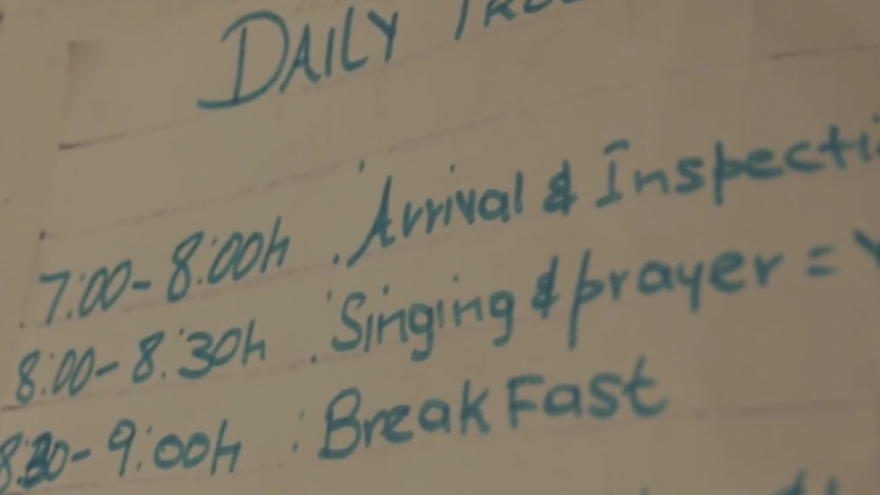 DAILY
7:00-8:00h : Arrival & Inspecti
8:00-8:30h : Singing & prayer =
8:30-9:00h : BreakFast